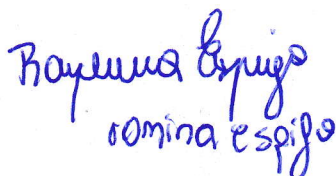 Romina Espigo
romina espigo